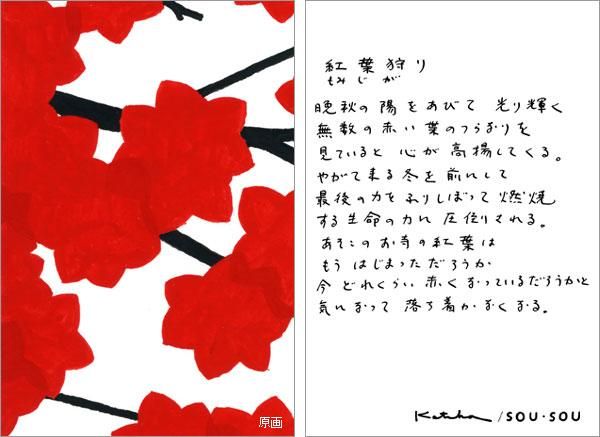 原画
紅葉狩り
もみじが
晩秋の陽をあびて 光り輝く
無数の赤い葉のつらなりを
見ていると 心が高揚してくる。
やがて来る冬を前にして
最後の力をふりしぼって燃焼
する生命の力に圧倒される。
あそこのお寺の紅葉は
もうはじまっただろうか
今どれくらい赤くなっているだろうかと
気になって 落ち着かなくなる。
Katsuji / SOU・SOU